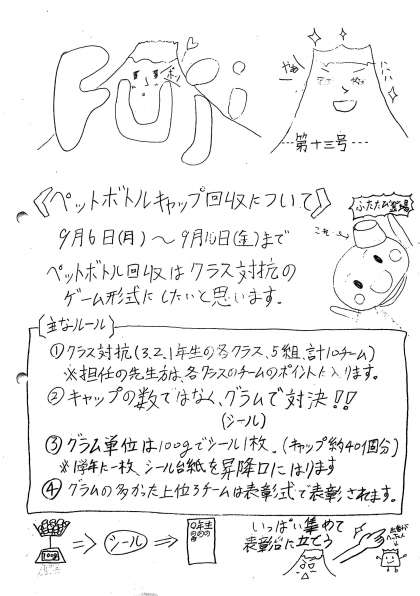 Fuji
やぁ
第十三号
《ペットボトルキャップ回収について》
ふたたび登場
9月6日(月)～9月10日(金)まで
ペットボトル回収はクラス対抗の
ゲーム形式にしたいと思います。
(主なルール)
①クラス対抗(3、2、1年生の各クラス、5組、計10チーム)
※担任の先生方は、各クラスのチームのポイントに入ります。
②キャップの数ではなく、グラムで対決!!
(シール)
③グラム単位は100gでシール1枚。(キャップ約40個分)
※1学年に一枚、シール台紙を昇降口にはります
④グラムの多かった上位3チームは表彰式で表彰されます。
100g
シール
いっぱい集めて
表彰台に立とう